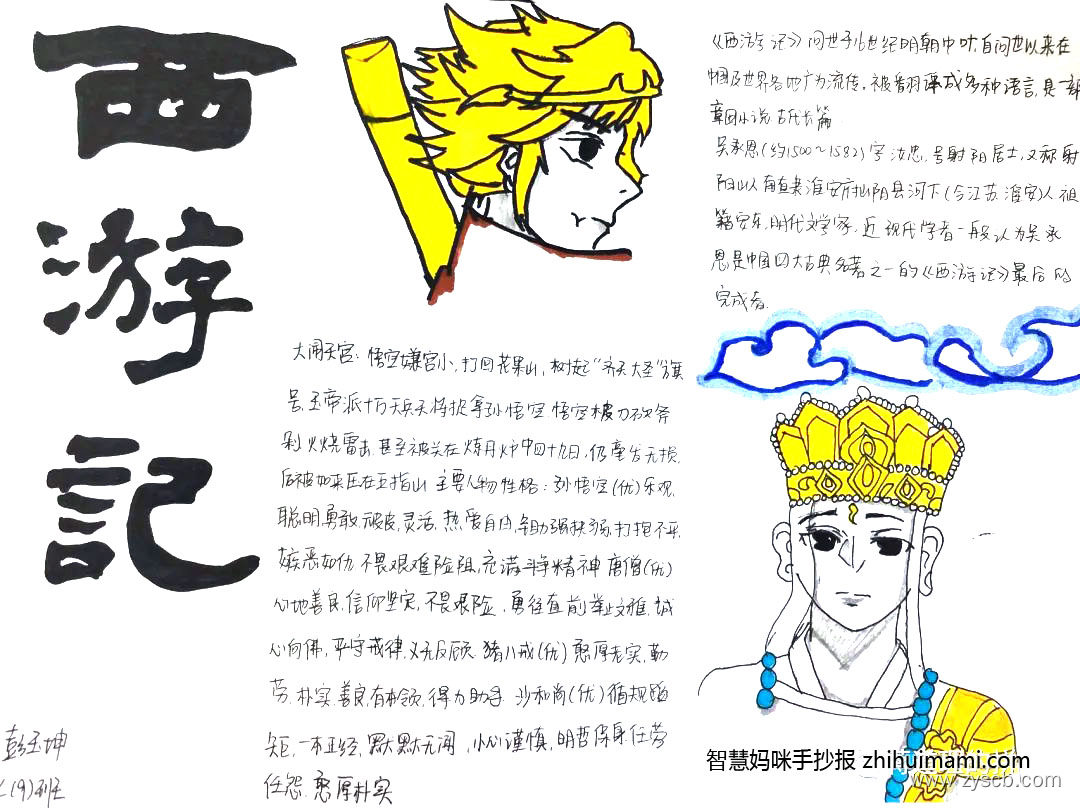 西
游
記
《西游记》问世于16世纪明朝中叶,自问世以来在
中国及世界各地广为流传,被翻译成多种语言,是一部
章回小说 古代长篇
吴承恩(约1500~1582)字汝忠,号射阳居士,又称射
阳山人 南直隶淮安府山阴县河下(今江苏淮安)人 祖
籍安东,明代文学家,近现代学者一般认为吴承
恩是中国四大古典名著之一的《西游记》最后的
完成者.
大闹天宫:悟空嫌官小,打回花果山,树起“齐天大圣”旗
号,玉帝派十万天兵天将捉拿孙悟空 悟空被刀砍斧
剁 火烧雷击,甚至被关在炼丹炉中四十九日,仍毫发无损,
后被如来压在五指山 主要人物性格:孙悟空(优)乐观,
聪明,勇敢,顽皮,灵活,热爱自由,锄强扶弱,打抱不平,
嫉恶如仇 不畏艰难险阻,充满斗争精神 唐僧(优)
心地善良,信仰坚定,不畏艰险,勇往直前,举止文雅,诚
心向佛,严守戒律,义无反顾 猪八戒(优)憨厚老实,勤
劳,朴实,善良,有本领,得力助手 沙和尚(优)循规蹈
矩,一本正经,默默无闻,小心谨慎,明哲保身 任劳
任怨,憨厚朴实
彭玉坤
(19)班
智慧妈咪手抄报 zhihuimami.com
www.zyscb.com